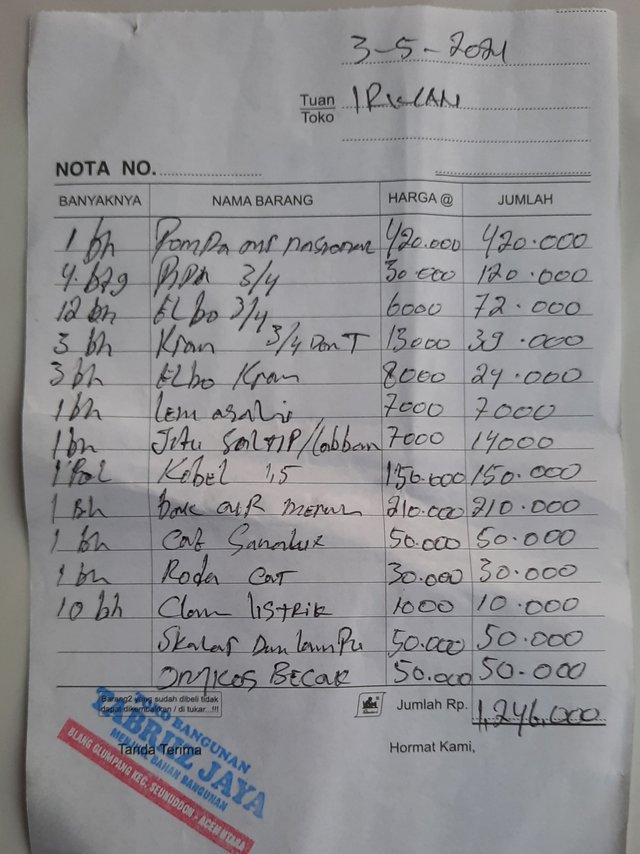 3-5-2021
Tuan IRWAN
Toko
NOTA NO.
BANYAKNYA NAMA BARANG HARGA @ JUMLAH
1 bh Pompa air nasional 420.000 420.000
4 btg Pipa 3/4 30.000 120.000
12 bh Elbo 3/4 6000 72.000
3 bh Kran 3/4 13000 39.000
3 bh Elbo Kran 8000 24.000
1 bh lem 7000 7000
1 bh 7000 14000
1 Rol Kabel 1,5 150.000 150.000
1 Bh bak air 210.000 210.000
1 bh cat 50.000 50.000
1 bh Roda cat 30.000 30.000
10 bh Clam listrik 1000 10.000
Skalar Dan lampu 50.000 50.000
ONGKOS BECAK 50.000 50.000
Barang2 yang sudah dibeli tidak
dapat dikembalikan / di tukar...!!!
Jumlah Rp. 1,246.000
Tanda Terima Hormat Kami,
TOKO BANGUNAN
FABRIZ JAYA
MENJUAL BAHAN BANGUNAN
BLANG GLUMPANG KEC. SEUNUDDON - ACEH UTARA